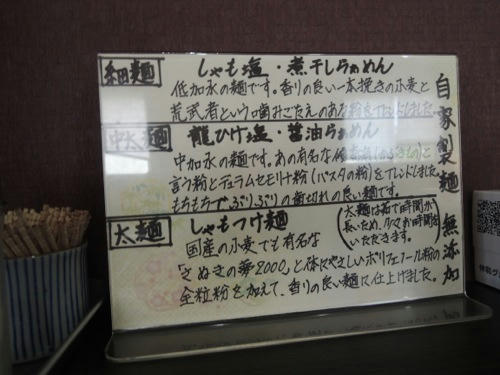 自家製麺 無添加
細麺
しゃも塩・煮干しらぁめん
低加水の麺です。香りの良い一本挽きの小麦と
荒武者という噛みごたえのある粉をブレンドしました。
中太麺
龍ひげ塩・醤油らぁめん
中加水の麺です。あの有名な
言う粉とデュラムセモリナ粉(パスタの粉)をブレンドしました。
もちもちでぷりぷりの歯切れの良い麺です。
太麺
しゃもつけ麺
国産の小麦でも有名な
"さぬきの夢2000"と体にやさしいポリフェノール粉の
全粒粉を加えて、香りの良い麺に仕上げました。
(太麺は茹で時間が
長いため、少々お時間を
いただきます。)